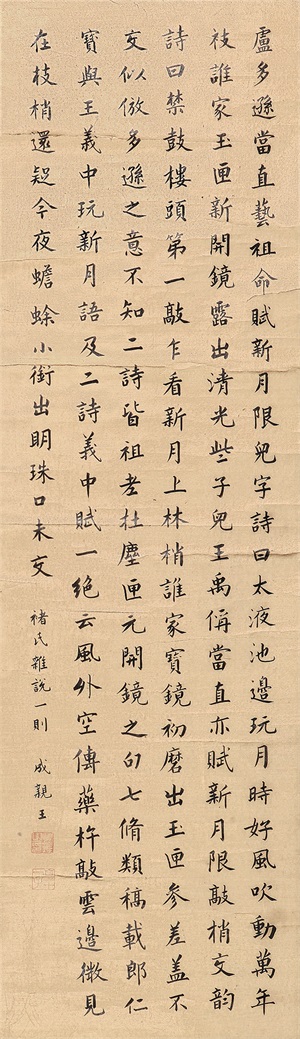 盧多遜當直藝祖命賦新月限兒字詩曰太液池邊玩月時好風吹動萬年
枝誰家玉匣新開鏡露出清光些子兒王禹偁當直亦賦新月限敲梢交韵
詩曰禁鼓樓頭第一敲乍看新月上林梢誰家寶鏡初磨出玉匣參差盖不
交似倣多遜之意不知二詩皆祖老杜塵匣元開鏡之句七脩類稿載郎仁
寶與王義中玩新月語及二詩義中賦一絕云風外空傳藥杵敲雲邊微見
在枝梢還疑今夜蟾蜍小銜出明珠口未交
褚氏雜說一則 成親王